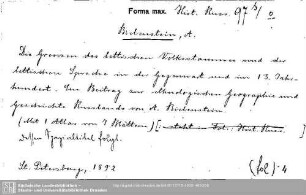 Forma max. Hist. Russ. 97 b/0
Bielenstein, A.
Die Grenzen des lettischen Volksstammes und der
lettischen Sprache in der Gegenwart und im 13. Jahr-
hundert. Ein Beitrag zur ethnologischen Geographie und
Geschichte Russlands von A. Bielenstein.
(Mit 1 Atlas von 7 Blättern) [steht in Fol. Hist. Russ.]
dessen Spezialtitel folgt.
St. Petersburg, 1892 (fol) 4
Sächsische Landesbibliothek -
Staats- und Universitätsbibliothek Dresden